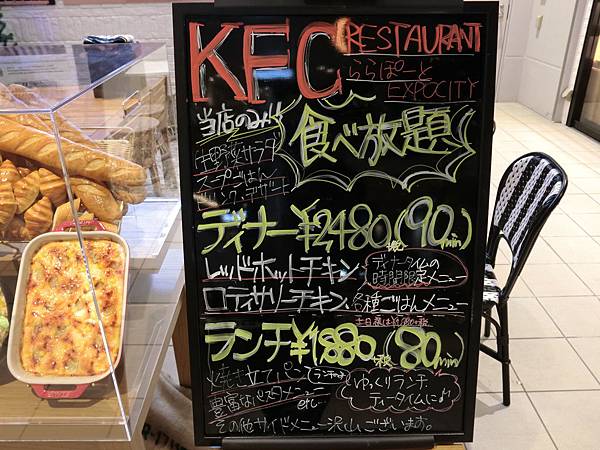 KFC RESTAURANT
ららぽーと
EXPOCITY
当店のみ!!
食べ放題
野菜サラダ
スープごはん
ドリンク、デザート
ディナー¥2480(90min)
レッドホットチキン
ディナータイムの
時間限定メニュー
ロティサリーチキン、各種ごはんメニュー
ランチ¥1880(80min)
焼き立てパン
ランチは
豊富なパスタメニュー etc…
ゆっくりランチ
ティータイムに♪
その他サイドメニュー沢山ございます。